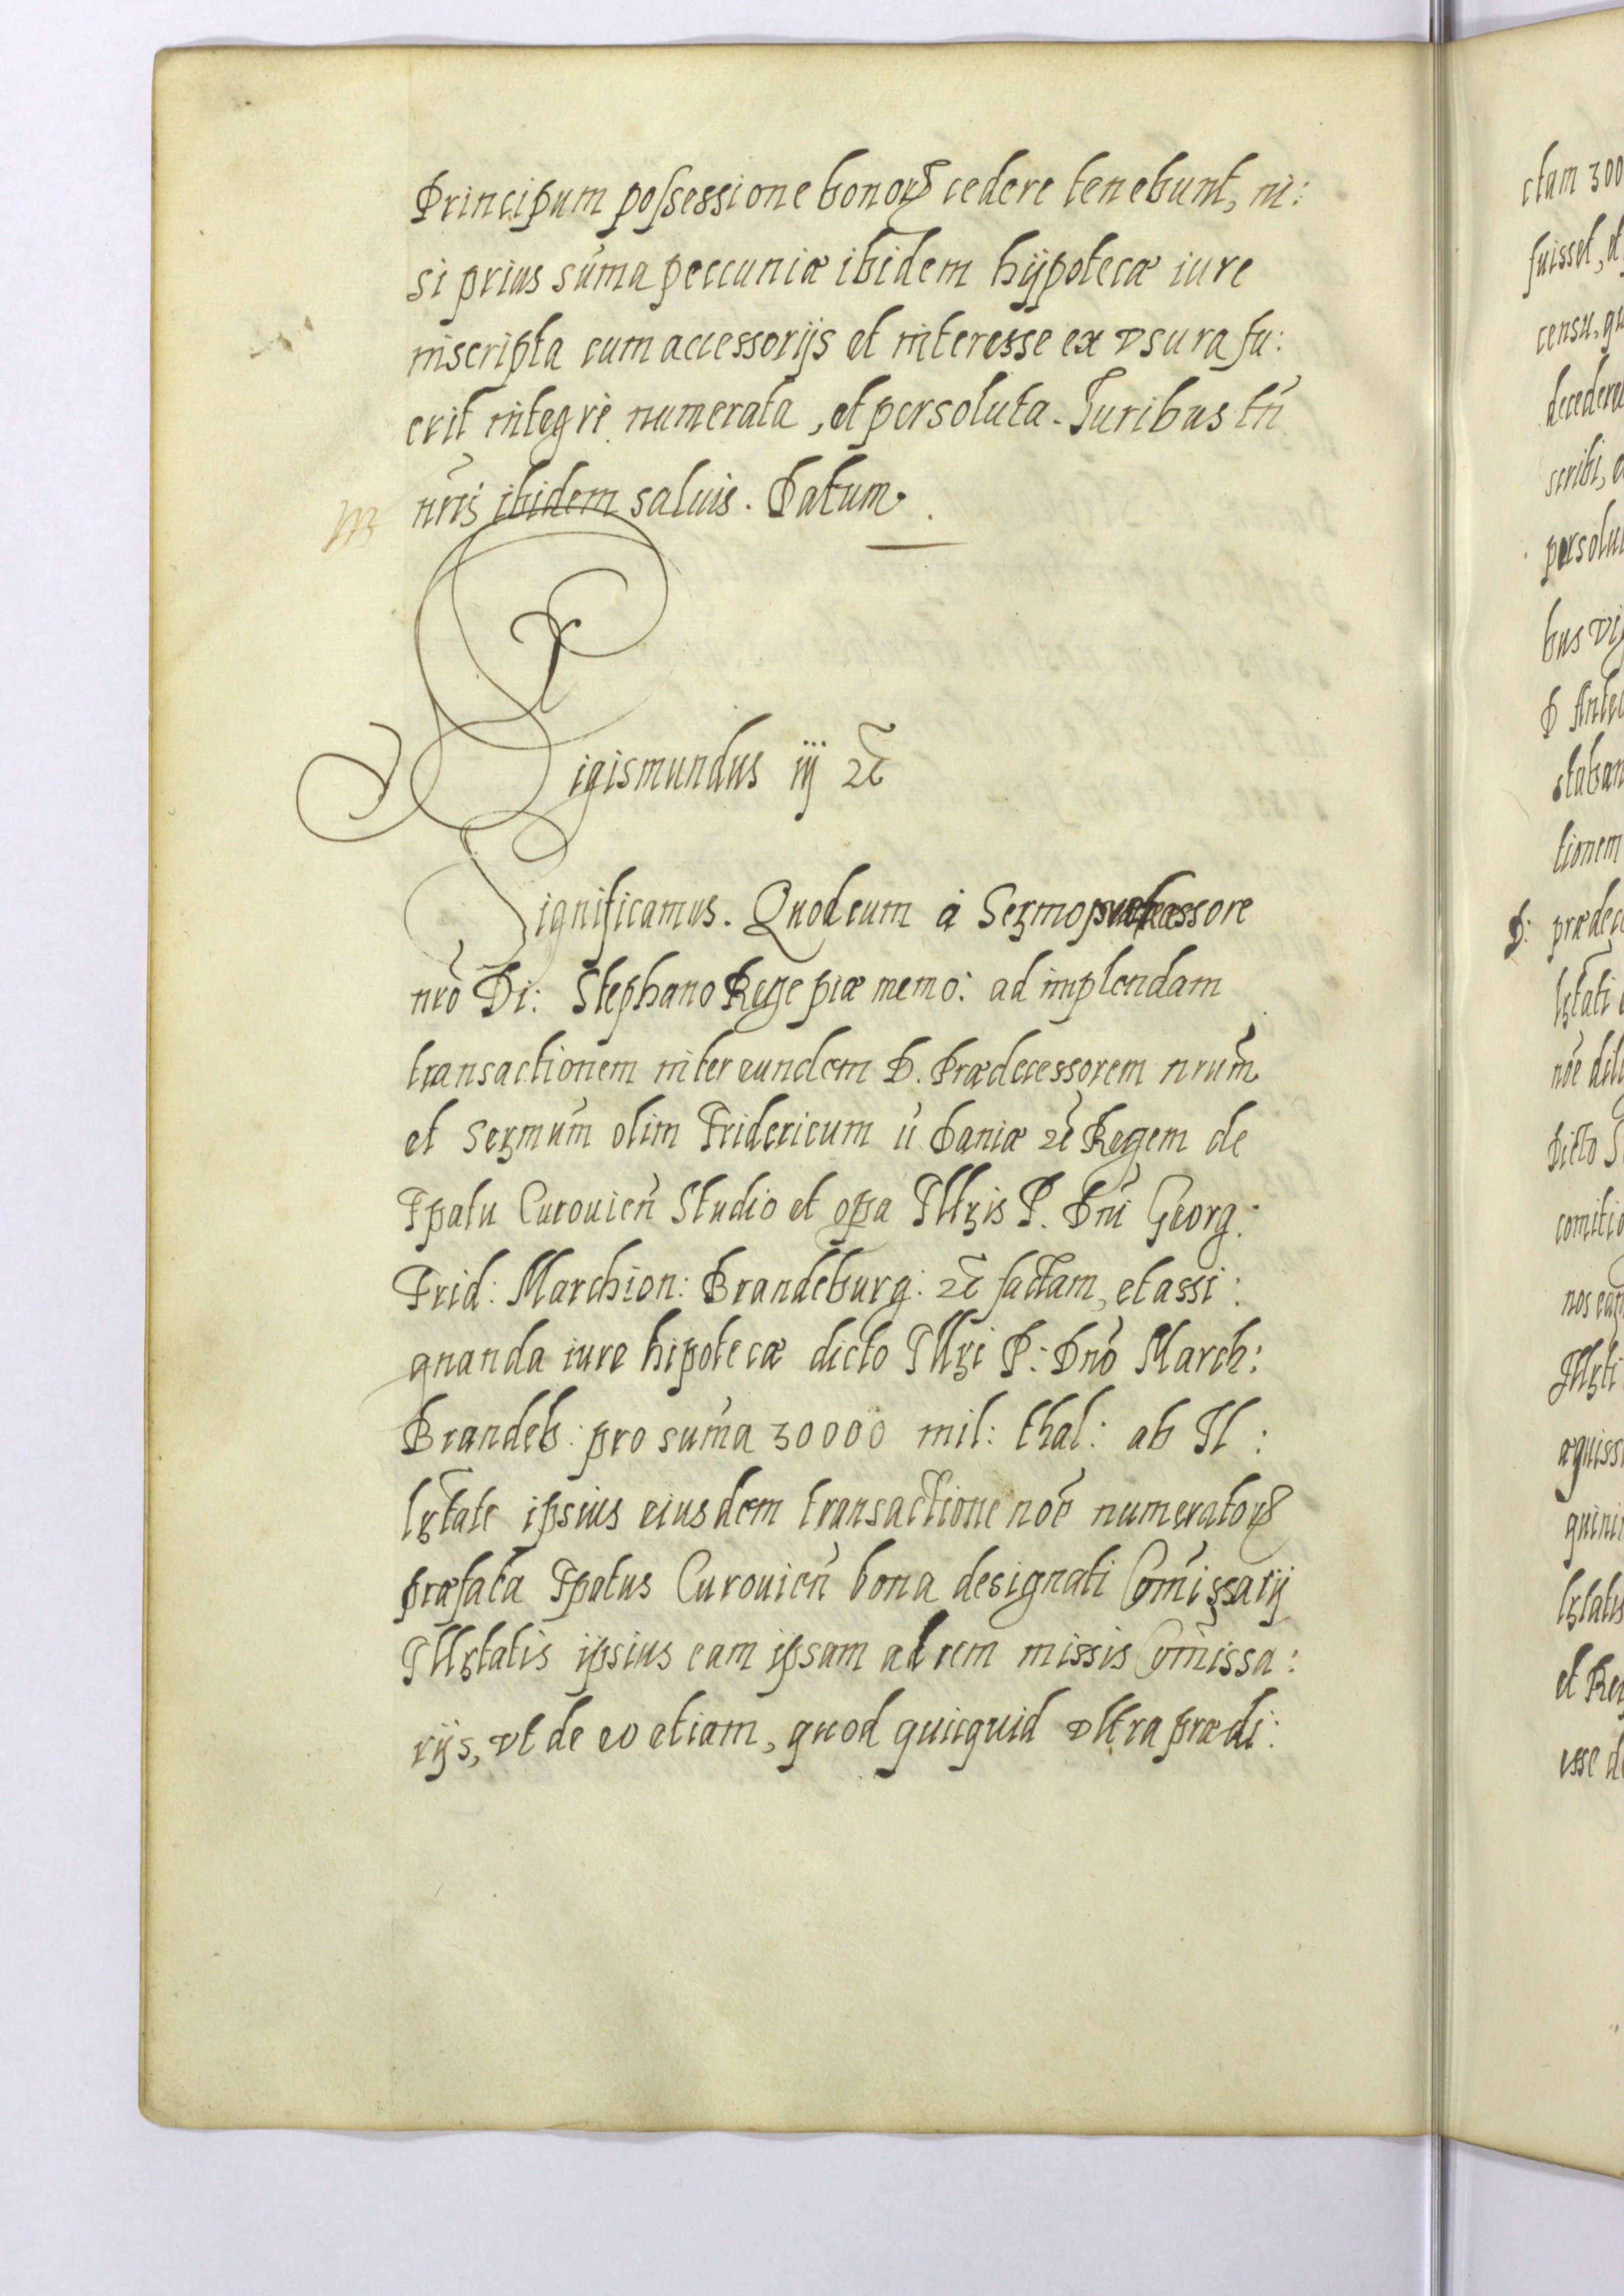 Principum possessione bonorꝝ cedere tenebunt, ni:
si prius sum̃a peccuniæ ibidem hÿpotecæ iure
inscripta cum accessorijs et interesse ex vsura fu:
erit integrè numerata, et persoluta. Iuribus tñ
nr̃is ibidem saluis. Datum.
Sigismundus iij ec̃
Significamus. Quod cum à Sermo
nr̃o Di: Stephano Rege piæ memo: ad implendam
transactionem inter eundem D. Prædecessorem nrum̃
et Sermum̃ olim Fridericum ii Daniæ ec̃ Regem de
Epatu Curouien̄ Studio et opa Illris P. Dni Georg:
Frid: Marchion: Brandeburg: ec̃ factam, et assi:
gnanda iure hipotecæ dicto Illri P: Dnõ March:
Brandeb: pro sum̃a 30000 mil: thal: ab Il:
lrtate ipsius eiusdem transactione nõe numeratorꝝ
præfata Epatus Curouien̄ bona designati Com̃issarij
Illrtatis ipsius eam ipsam ad rem missis Com̃issa:
rijs, vt de eo etiam, quod quicquid vltra prædi:
ctam 300
fuisset, et
persolu
bus
tionem
esse